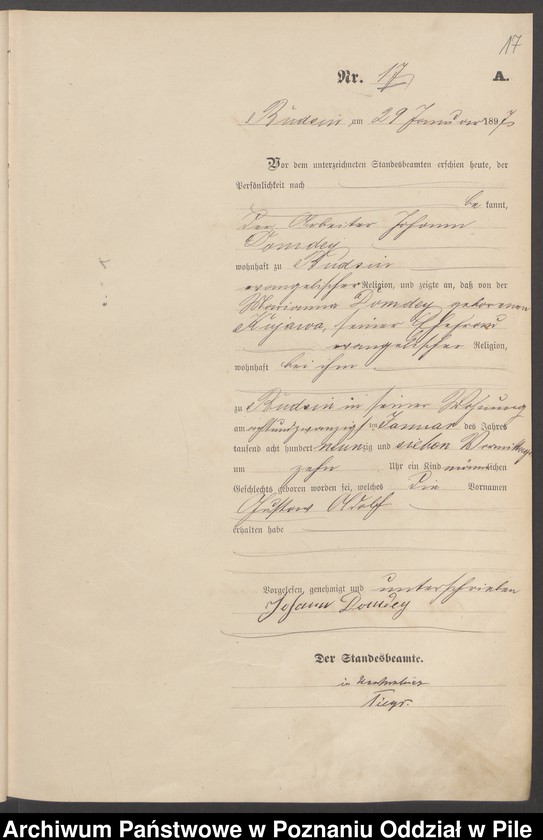 17
Nr. 17 A.
Budsin, am 29 Januar 1897
Vor dem unterzeichneten Standesbeamten erschien heute, der
Persönlichkeit nach
bekannt,
Der Arbeiter Johann
Domdey
wohnhaft zu Budsin
evangelischer Religion, und zeigte an, daß von der
Marianna Domdey geborenen
Kujawa, seiner Ehefrau
evangelischer Religion,
wohnhaft bei ihm
zu Budsin in seiner Wohnung
am achtundzwanzigsten Januar des Jahres
tausend acht hundert neunzig und sieben Vormittags
um zehn Uhr ein Kind männlichen
Geschlechts geboren worden sei, welches die Vornamen
Gustav Adolf
erhalten habe
Vorgelesen, genehmigt und unterschrieben
Johann Domdey
Der Standesbeamte.
in Vertretung
Archiwum Państwowe w Poznaniu Oddział w Pile